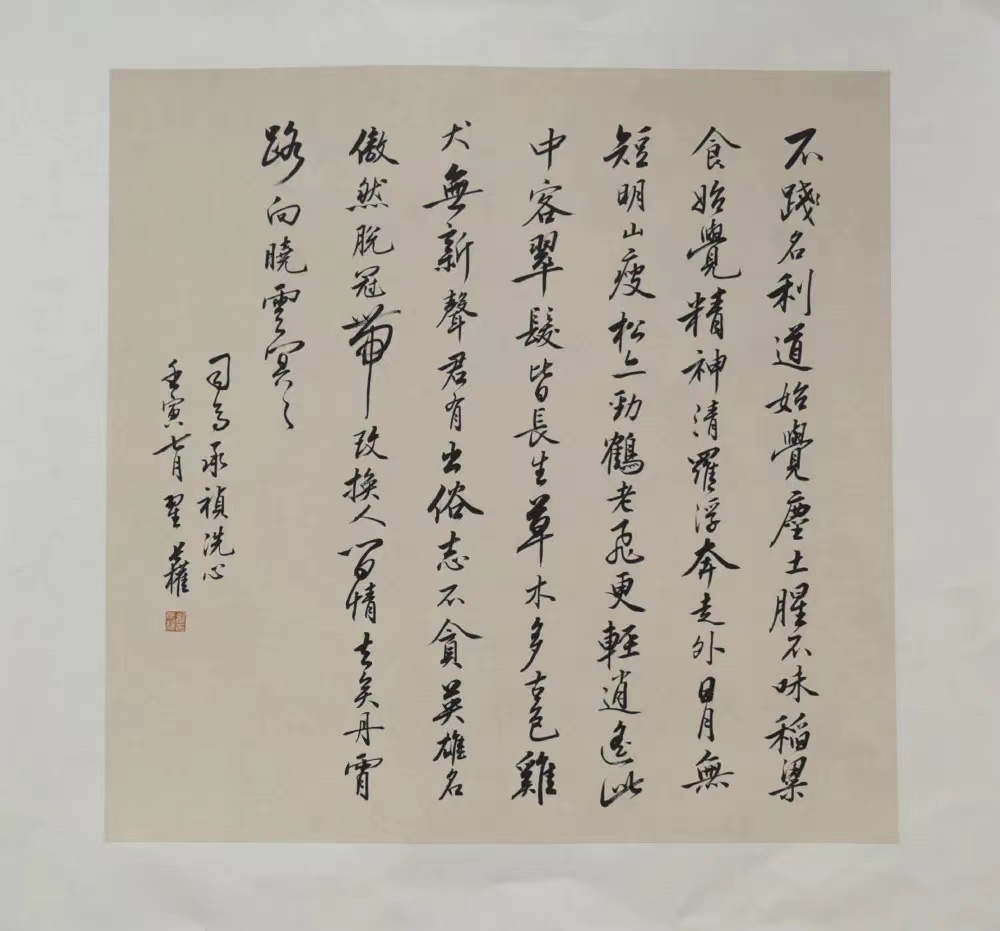 不踐名利道始覺塵土腥不味稻粱
食始覺精神清羅浮奔走外日月無
短明山瘦松亦勁鶴老飛更輕逍遙此
中客翠髮皆長生草木多古色雞
犬無新聲君有出俗志不貪英雄名
傲然脫冠帶改換人間情去矣丹霄
路向曉雲冥々
司馬承禎洗心
壬寅七月翟